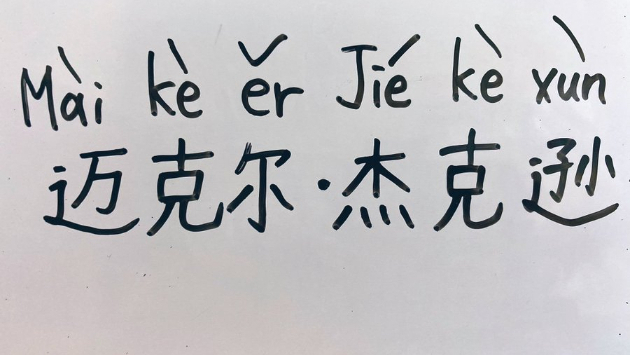 Mài kè ěr Jié kè xùn
迈克尔·杰克逊